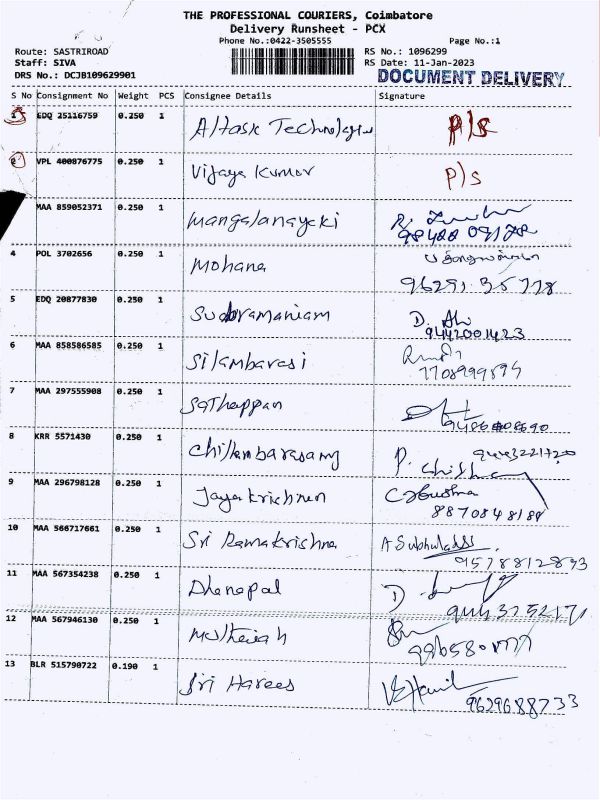 THE PROFESSIONAL COURIERS, Coimbatore
Delivery Runsheet - PCX
Phone No.:0422-3505555 Page No.:1
Route: SASTRIROAD RS No.: 1096299
Staff: SIVA RS Date: 11-Jan-2023
DRS No.: DCJB109629901 DOCUMENT DELIVERY
S No Consignment No Weight PCS Consignee Details Signature
EDQ 25116759 0.250 1 Altask Technologies P/s
VPL 400876775 0.250 1 Vijaya Kumar P/s
MAA 859052371 0.250 1 Mangalanayaki
4 POL 3702656 0.250 1 Mohana
96291 35778
5 EDQ 20877830 0.250 1 Subramaniam D.
9442001423
6 MAA 858586585 0.250 1 Silambarasi
7 MAA 297555908 0.250 1 Sathappan
8 KRR 5571430 0.250 1 P.
9 MAA 296798128 0.250 1 Jayakrishnen
10 MAA 566717661 0.250 1 Sri Ramakrishna
9578812893
11 MAA 567354238 0.250 1 Dhanapal D.
12 MAA 567946130 0.250 1
13 BLR 515790722 0.190 1 Sri Harees
9629688733